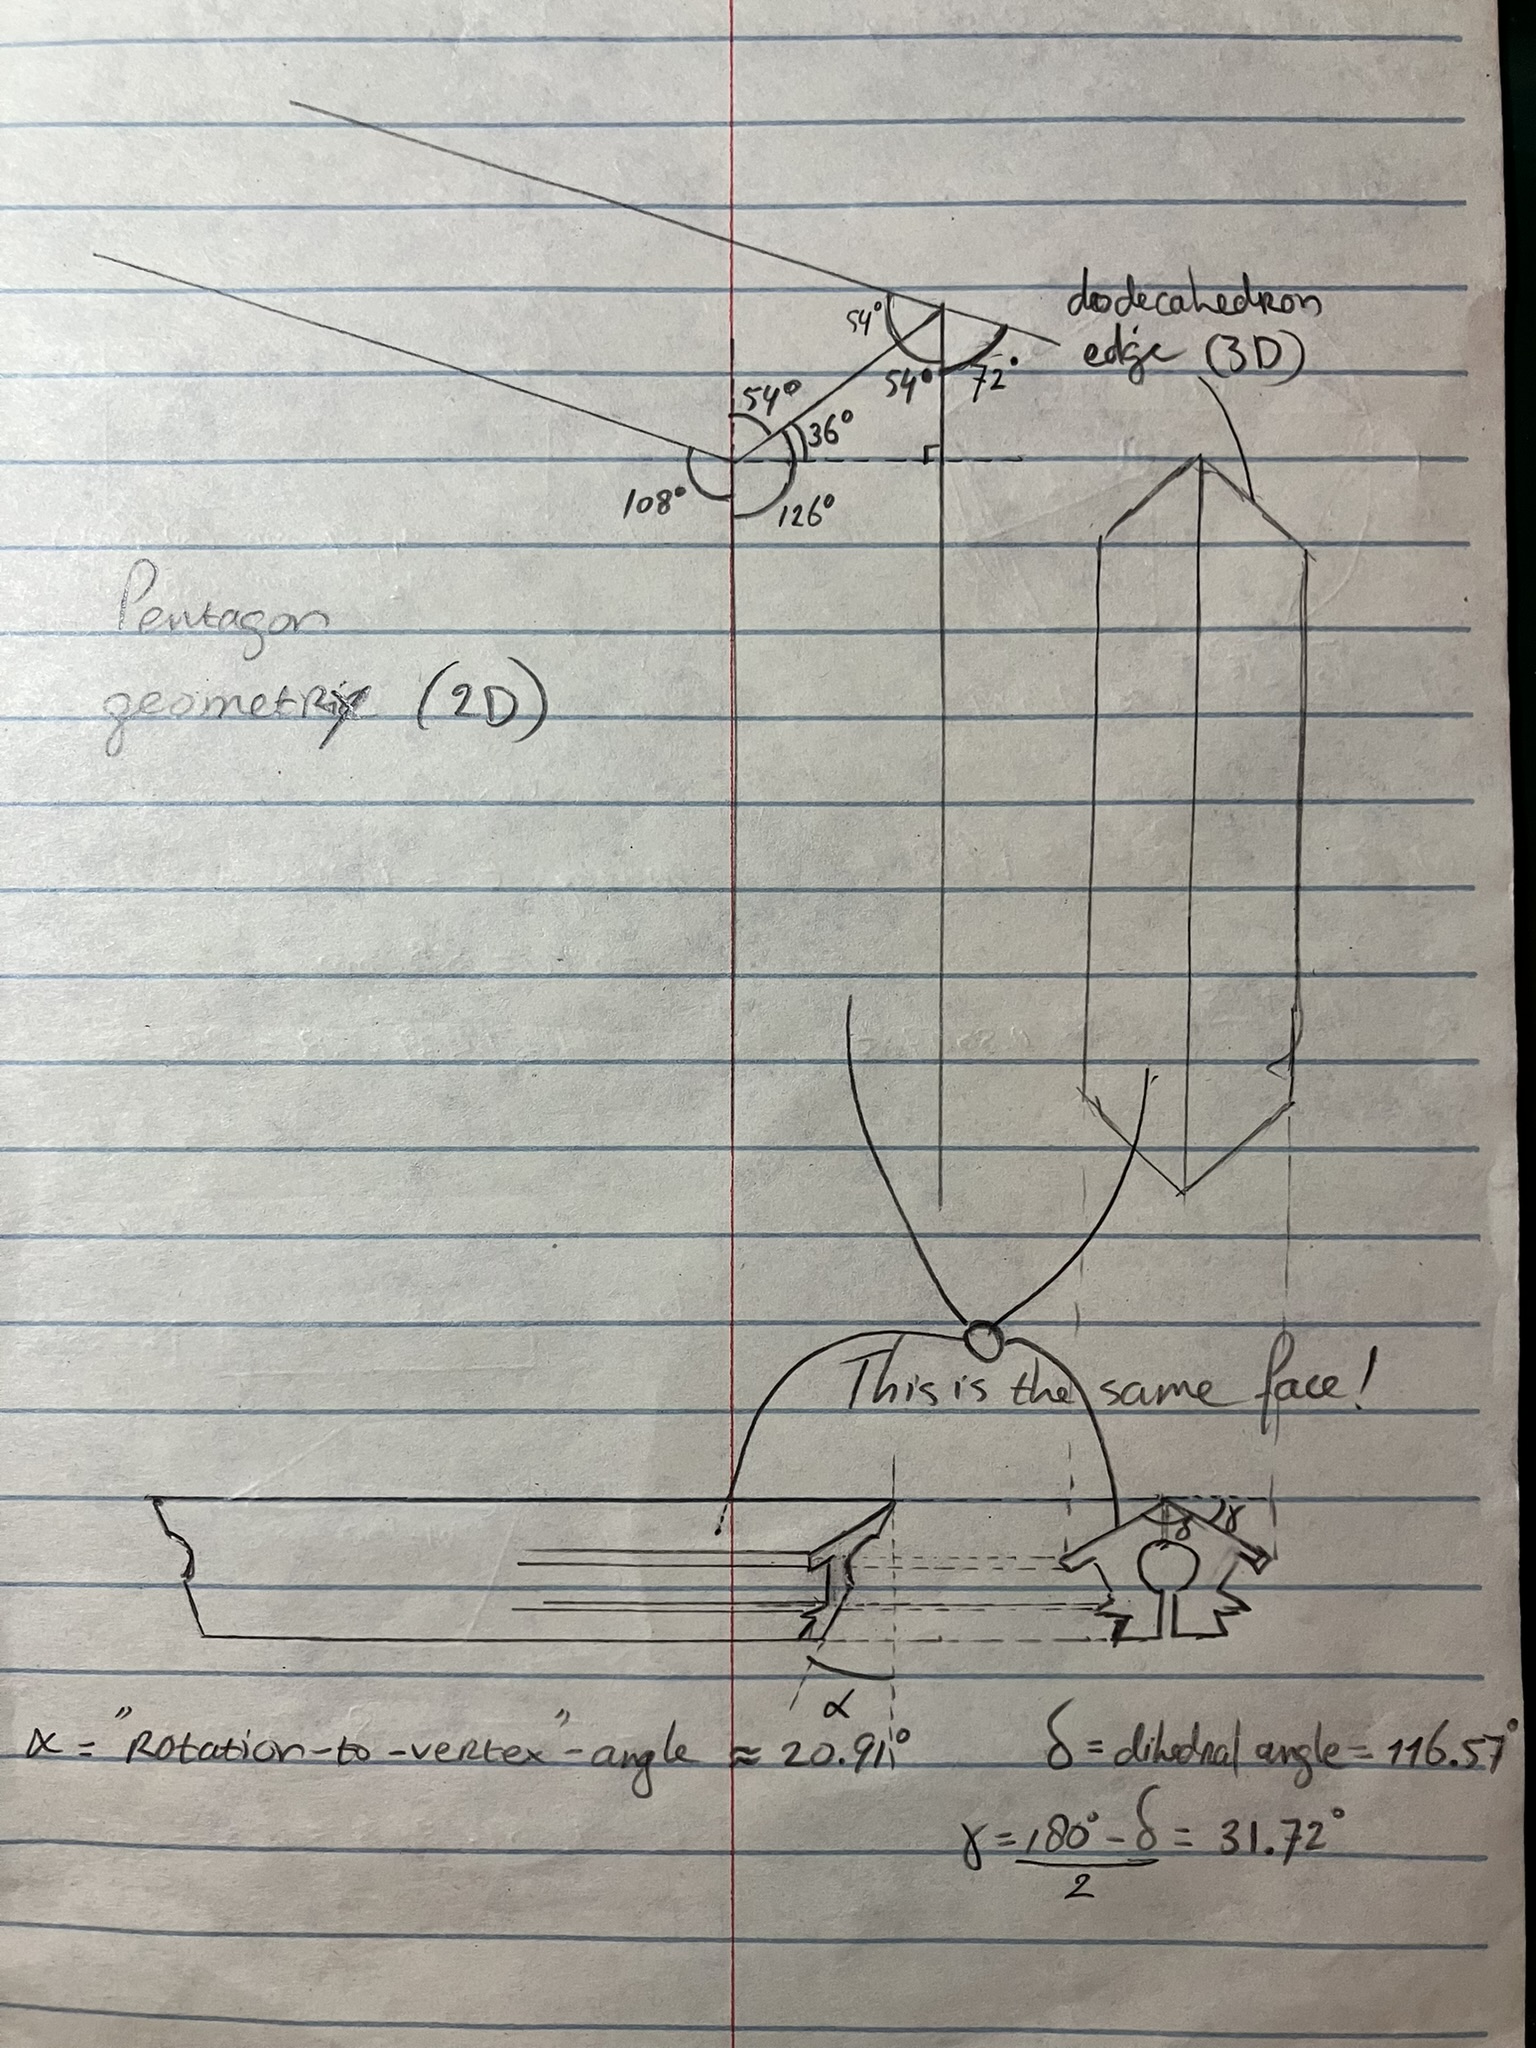 dodecahedron
edge (3D)
54°
54°
72°
54°
36°
108°
126°
Pentagon
geometry (2D)
This is the same face!
δ
γ
α
α = "Rotation-to-vertex"-angle ≈ 20.91°
δ = dihedral angle = 116.57°
γ = 180° - δ = 31.72°
2